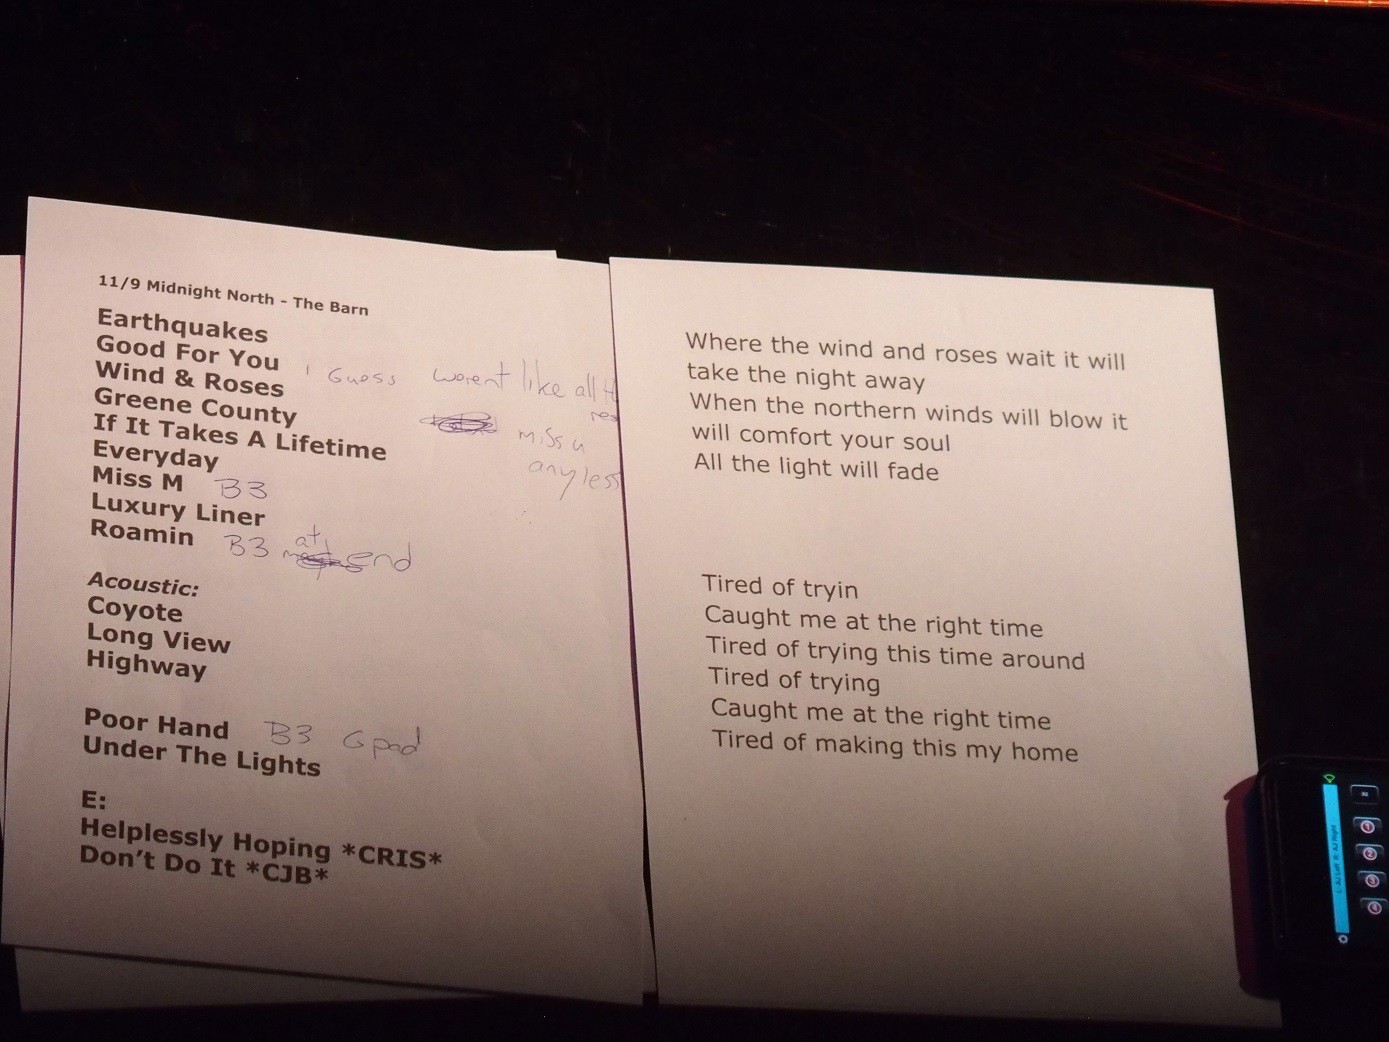 11/9 Midnight North - The Barn
Earthquakes
Good For You
Wind & Roses
Greene County
If It Takes A Lifetime
Everyday
Miss M B3
Luxury Liner
Roamin B3 at end
I Guess werent like all
res
miss u
any less
Acoustic:
Coyote
Long View
Highway
Poor Hand B3 G pad
Under The Lights
E:
Helplessly Hoping *CRIS*
Don't Do It *CJB*
Where the wind and roses wait it will
take the night away
When the northern winds will blow it
will comfort your soul
All the light will fade
Tired of tryin
Caught me at the right time
Tired of trying this time around
Tired of trying
Caught me at the right time
Tired of making this my home
1
2
3
4